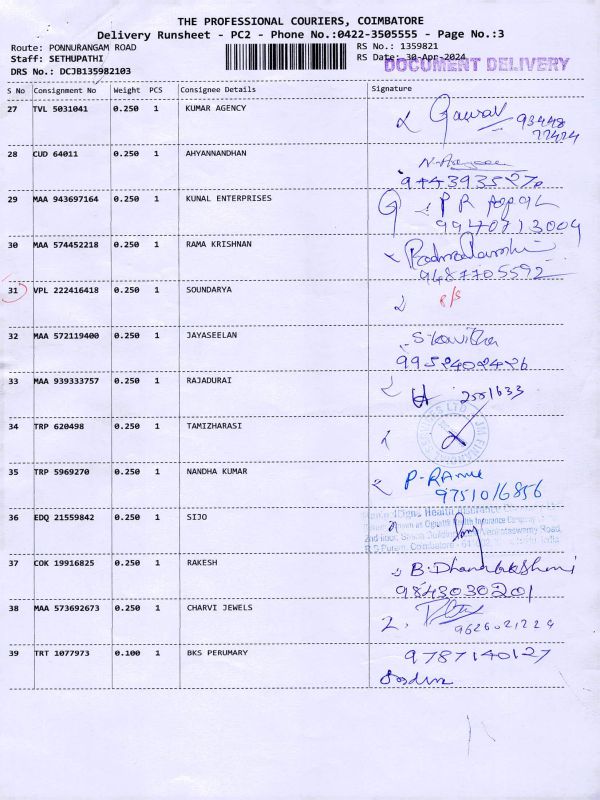 THE PROFESSIONAL COURIERS, COIMBATORE
Delivery Runsheet - PC2 - Phone No.:0422-3505555 - Page No.:3
Route: PONNURANGAM ROAD
Staff: SETHUPATHI
DRS No.: DCJB135982103
RS No.: 1359821
RS Date: 30-Apr-2024
DOCUMENT DELIVERY
S No Consignment No Weight PCS Consignee Details Signature
27 TVL 5031041 0.250 1 KUMAR AGENCY Gaurav 93448
77424
28 CUD 64011 0.250 1 AHYANNANDHAN
9443935270
29 MAA 943697164 0.250 1 KUNAL ENTERPRISES P R
9940713009
30 MAA 574452218 0.250 1 RAMA KRISHNAN
9487705592
31 VPL 222416418 0.250 1 SOUNDARYA R/S
32 MAA 572119400 0.250 1 JAYASEELAN S. Kavitha
9952402426
33 MAA 939333757 0.250 1 RAJADURAI
34 TRP 620498 0.250 1 TAMIZHARASI
35 TRP 5969270 0.250 1 NANDHA KUMAR
9751016856
36 EDQ 21559842 0.250 1 SIJO
37 COK 19916825 0.250 1 RAKESH B. Dhanalakshmi
9843030201
38 MAA 573692673 0.250 1 CHARVI JEWELS
9626021224
39 TRT 1077973 0.100 1 BKS PERUMARY 9787140127